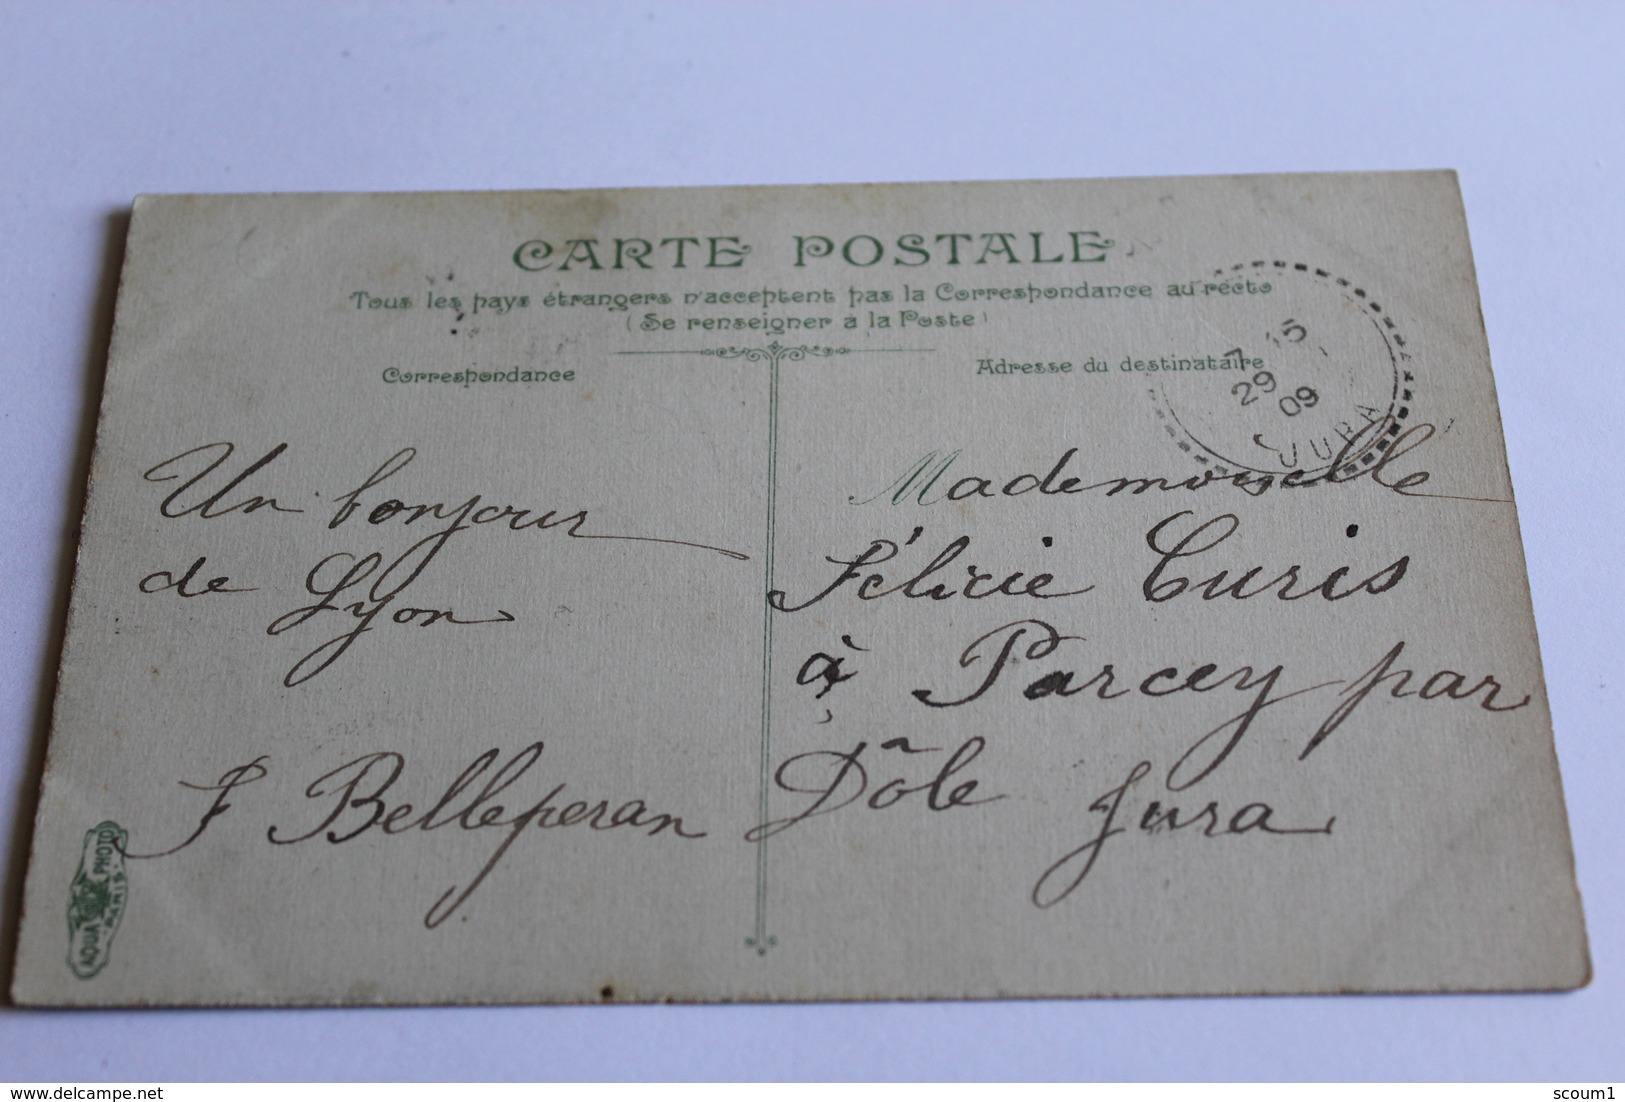 CARTE POSTALE
Tous les pays étrangers n'acceptent pas la Correspondance au recto
(Se renseigner à la Poste)
Correspondance
Adresse du destinataire
15
29
09
JURA
Un bonjour
de Lyon
F Belleperan
Mademoiselle
Félicie Curis
à Parcey par
Dôle Jura
AQUA PHOTO
PARIS
www.delcampe.net
scoum1